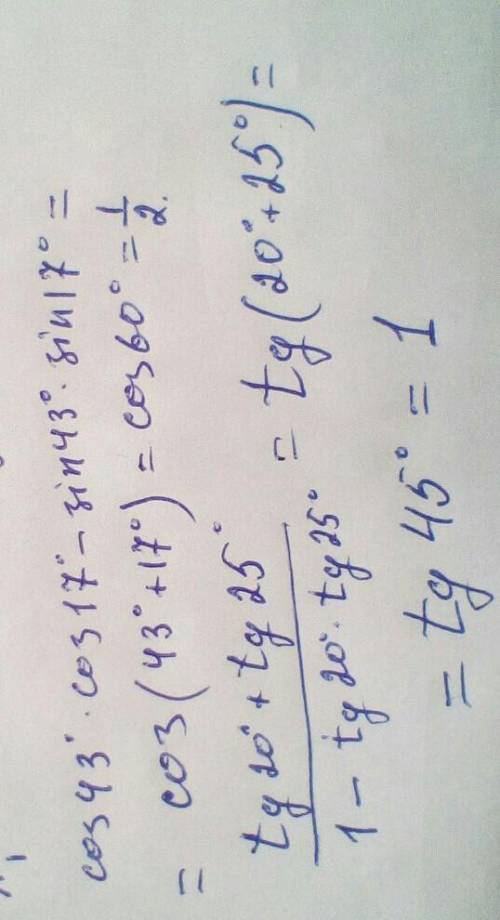 cos43°·cos17°-sin43°·sin17°=
= cos(43°+17°)=cos60°=1/2.
(tg20°+tg25°)/(1-tg20°·tg25°) = tg(20°+25°)=
= tg45°=1